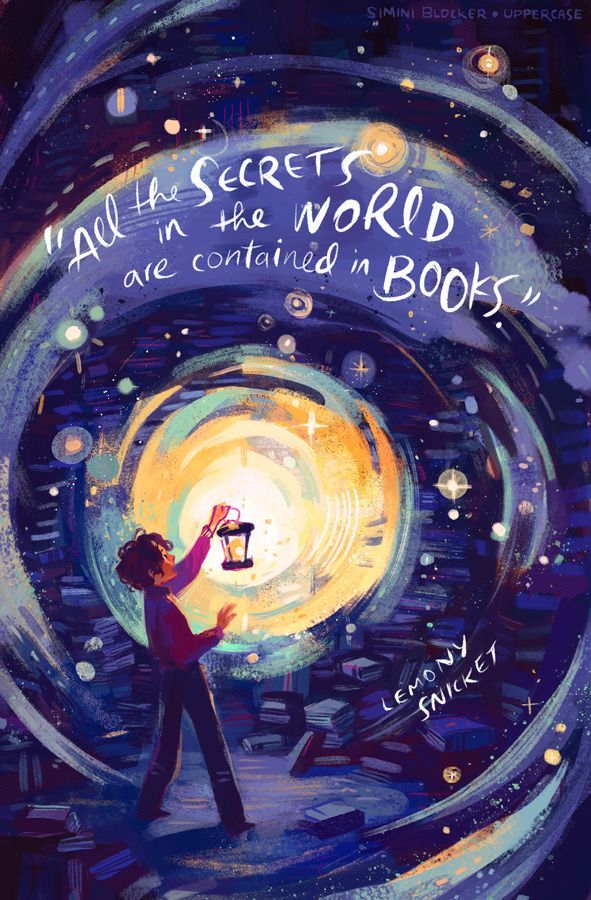 SIMINI BLOCKER • UPPERCASE
"All the SECRETS
in the WORLD
are contained in BOOKS."
LEMONY
SNICKET